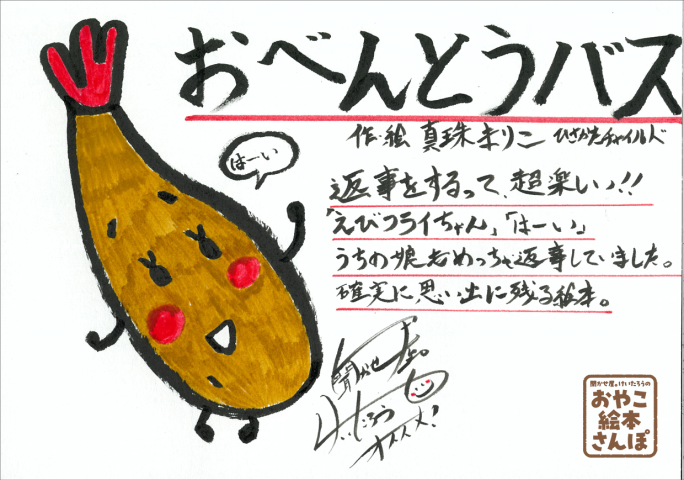 おべんとうバス
作・絵 真珠まりこ ひさかたチャイルド
はーい
返事をするって、超楽しいっ!!
「えびフライちゃん」「はーい」
うちの娘もめっちゃ返事していました。
確実に思い出に残る絵本。
聞かせ屋。
けいたろう
オススメ!
聞かせ屋。けいたろうの
おやこ
絵本
さんぽ